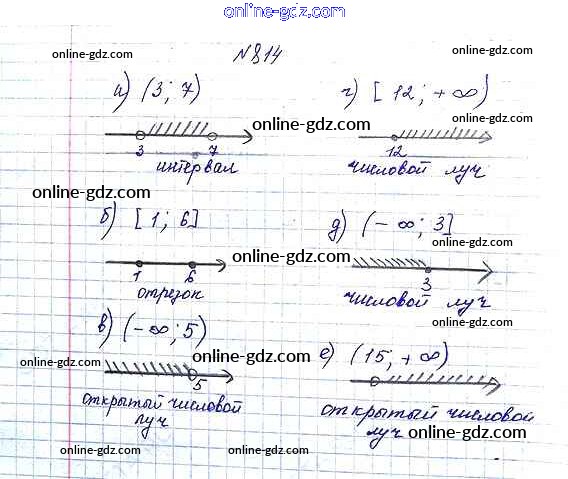 online-gdz.com
№814
online-gdz.com
online-gdz.com
а) (3; 7)
г) [12; +∞)
online-gdz.com
3 7
12
интервал
числовой луч
online-gdz.com
online-gdz.com
б) [1; 6]
д) (-∞; 3]
online-gdz.com
1 6
3
отрезок
числовой луч
в) (-∞; 5)
online-gdz.com
online-gdz.com
online-gdz.com
е) (15; +∞)
online-gdz.com
5
открытый числовой
луч
открытый числовой
луч
online-gdz.com
online-gdz.com
online-gdz.com